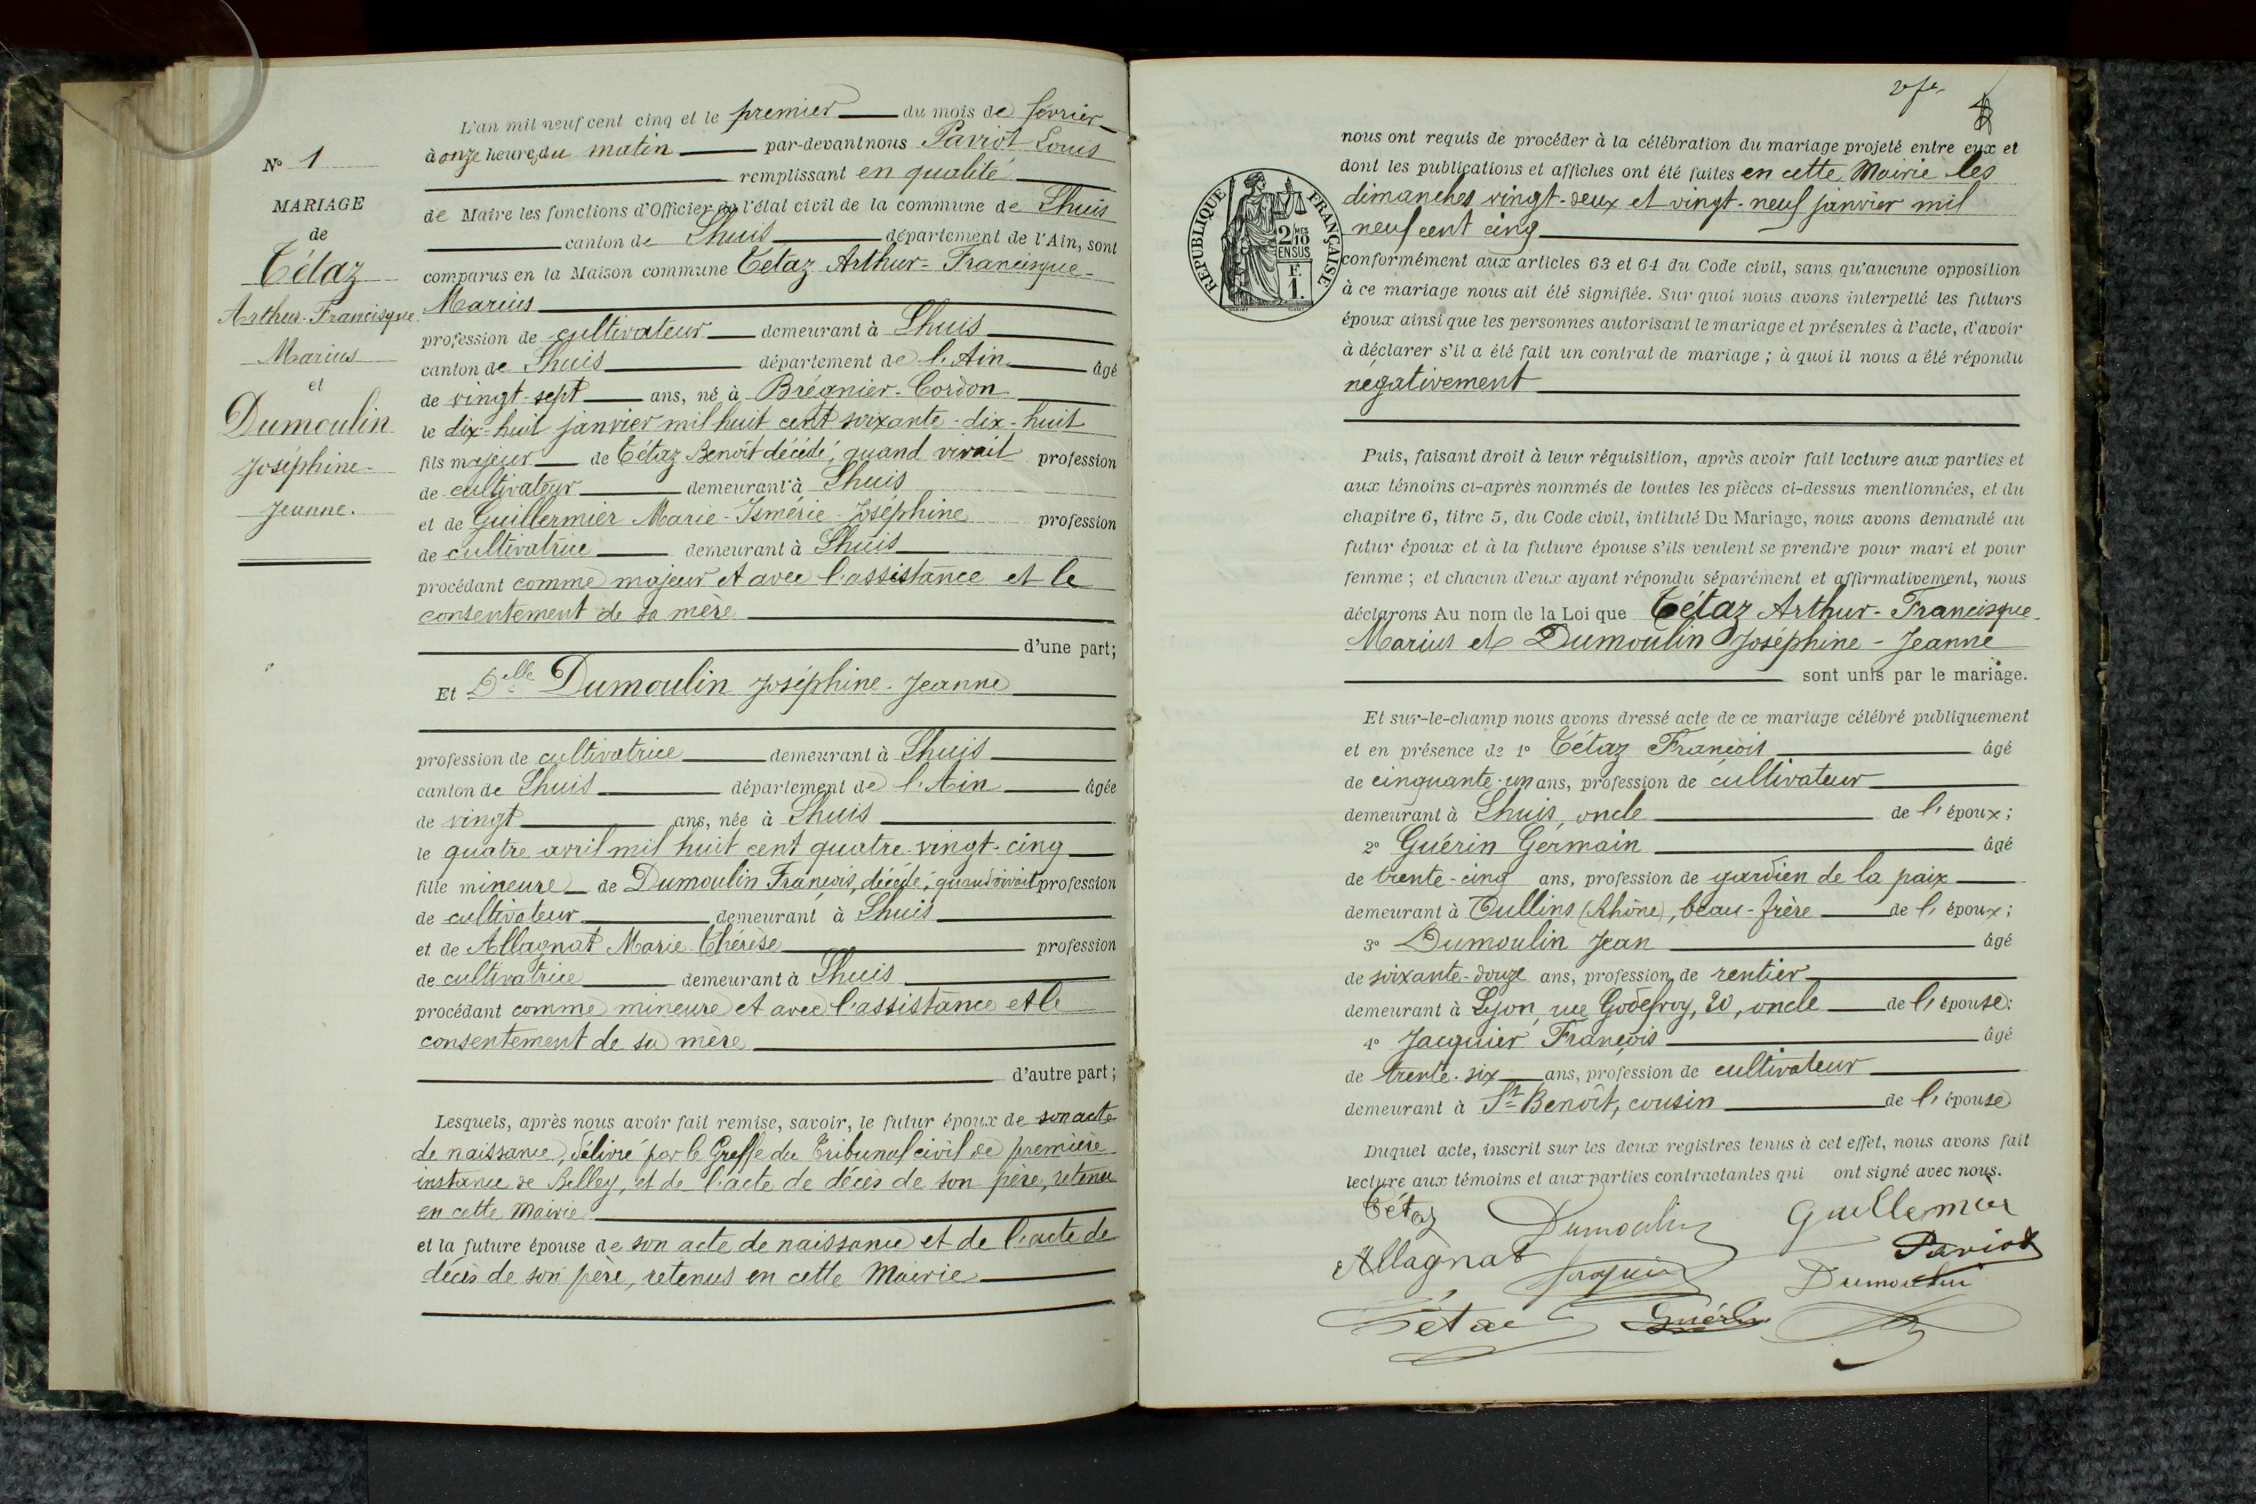 N° 1
MARIAGE
de
Tétaz
Arthur-Francisque
Marius
et
Dumoulin
Joséphine-
Jeanne.
L'an mil neuf cent cinq et le premier du mois de février
à onze heures du matin par-devant nous Paviot Louis
remplissant en qualité
de Maire les fonctions d'Officier de l'état civil de la commune de Lhuis
canton de Lhuis département de l'Ain, sont
comparus en la Maison commune Tétaz Arthur-Francisque-
Marius
profession de cultivateur demeurant à Lhuis
canton de Lhuis département de l'Ain âgé
de vingt-sept ans, né à Brégnier-Cordon
le dix-huit janvier mil huit cent soixante-dix-huit
fils majeur de Tétaz Benoît décédé, quand vivait profession
de cultivateur demeurant à Lhuis
et de Guillermier Marie-Ismérie-Joséphine profession
de cultivatrice demeurant à Lhuis
procédant comme majeur et avec l'assistance et le
consentement de sa mère
d'une part;
Et Delle Dumoulin Joséphine-Jeanne
profession de cultivatrice demeurant à Lhuis
canton de Lhuis département de l'Ain âgée
de vingt ans, née à Lhuis
le quatre avril mil huit cent quatre-vingt-cinq
fille mineure de Dumoulin François, décédé, quand vivait profession
de cultivateur demeurant à Lhuis
et de Allagnat Marie-Thérèse profession
de cultivatrice demeurant à Lhuis
procédant comme mineure et avec l'assistance et le
consentement de sa mère
d'autre part;
Lesquels, après nous avoir fait remise, savoir, le futur époux de son acte
de naissance, délivré par le Greffe du Tribunal civil de première
instance de Belley, et de l'acte de décès de son père, retenu
en cette Mairie
et la future épouse de son acte de naissance et de l'acte de
décès de son père, retenus en cette Mairie
nous ont requis de procéder à la célébration du mariage projeté entre eux et
dont les publications et affiches ont été faites en cette Mairie les
dimanches vingt-deux et vingt-neuf janvier mil
neuf cent cinq
RÉPUBLIQUE FRANÇAISE
2 MES
10
EN SUS
F.
1.
conformément aux articles 63 et 64 du Code civil, sans qu'aucune opposition
à ce mariage nous ait été signifiée. Sur quoi nous avons interpellé les futurs
époux ainsi que les personnes autorisant le mariage et présentes à l'acte, d'avoir
à déclarer s'il a été fait un contrat de mariage; à quoi il nous a été répondu
négativement
Puis, faisant droit à leur réquisition, après avoir fait lecture aux parties et
aux témoins ci-après nommés de toutes les pièces ci-dessus mentionnées, et du
chapitre 6, titre 5, du Code civil, intitulé Du Mariage, nous avons demandé au
futur époux et à la future épouse s'ils veulent se prendre pour mari et pour
femme; et chacun d'eux ayant répondu séparément et affirmativement, nous
déclarons Au nom de la Loi que Tétaz Arthur-Francisque-
Marius et Dumoulin Joséphine-Jeanne
sont unis par le mariage.
Et sur-le-champ nous avons dressé acte de ce mariage célébré publiquement
et en présence de 1° Tétaz François âgé
de cinquante-un ans, profession de cultivateur
demeurant à Lhuis, oncle de l'époux;
2° Guérin Germain âgé
de trente-cinq ans, profession de gardien de la paix
demeurant à Tullins (Rhône), beau-frère de l'époux;
3° Dumoulin Jean âgé
de soixante-douze ans, profession de rentier
demeurant à Lyon, rue Godefroy, 20, oncle de l'épouse;
4° Jacquier François âgé
de trente-six ans, profession de cultivateur
demeurant à St Benoît, cousin de l'épouse
Duquel acte, inscrit sur les deux registres tenus à cet effet, nous avons fait
lecture aux témoins et aux parties contractantes qui ont signé avec nous.
Tétaz Dumoulin Guillermier
Allagnat Jacquier Paviot
Dumoulin
Tétaz Guérin